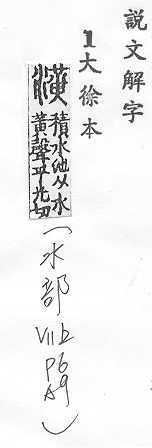 説文解字
1大徐本
潢積水池从水
黃聲乎光切
(水部 VIIb
P6
A9)